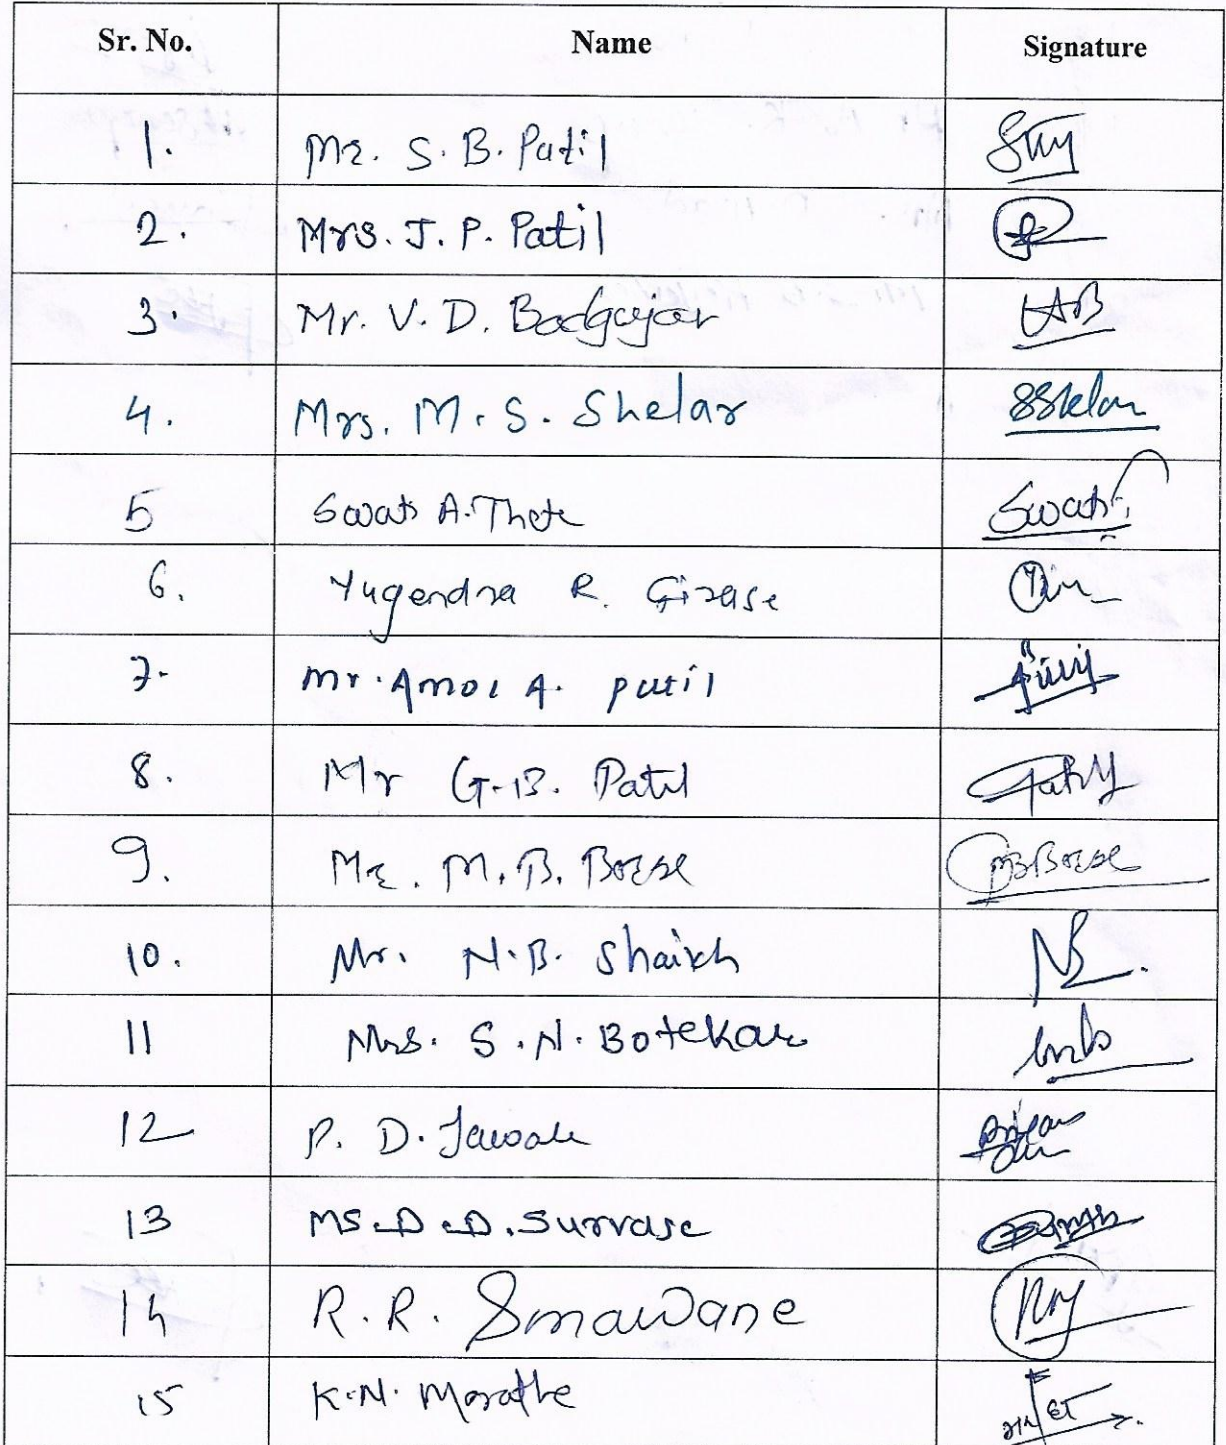 Sr. No. Name Signature
1. Mr. S. B. Patil
2. Mrs. J. P. Patil
3. Mr. V. D. Badgujar
4. Mrs. M. S. Shelar SShelar
5 Swati A. Thete Swati
6. Yugendra R. Girase
7. Mr. Amol A. Patil
8. Mr G. B. Patil
9. Mr. M. B. Borse MBBorse
10. Mr. N. B. Shaikh
11 Mrs. S. N. Botekar
12 P. D. Jawale
13 Ms. D. D. Survase
14 R. R. Sonawane
15 K. N. Marathe